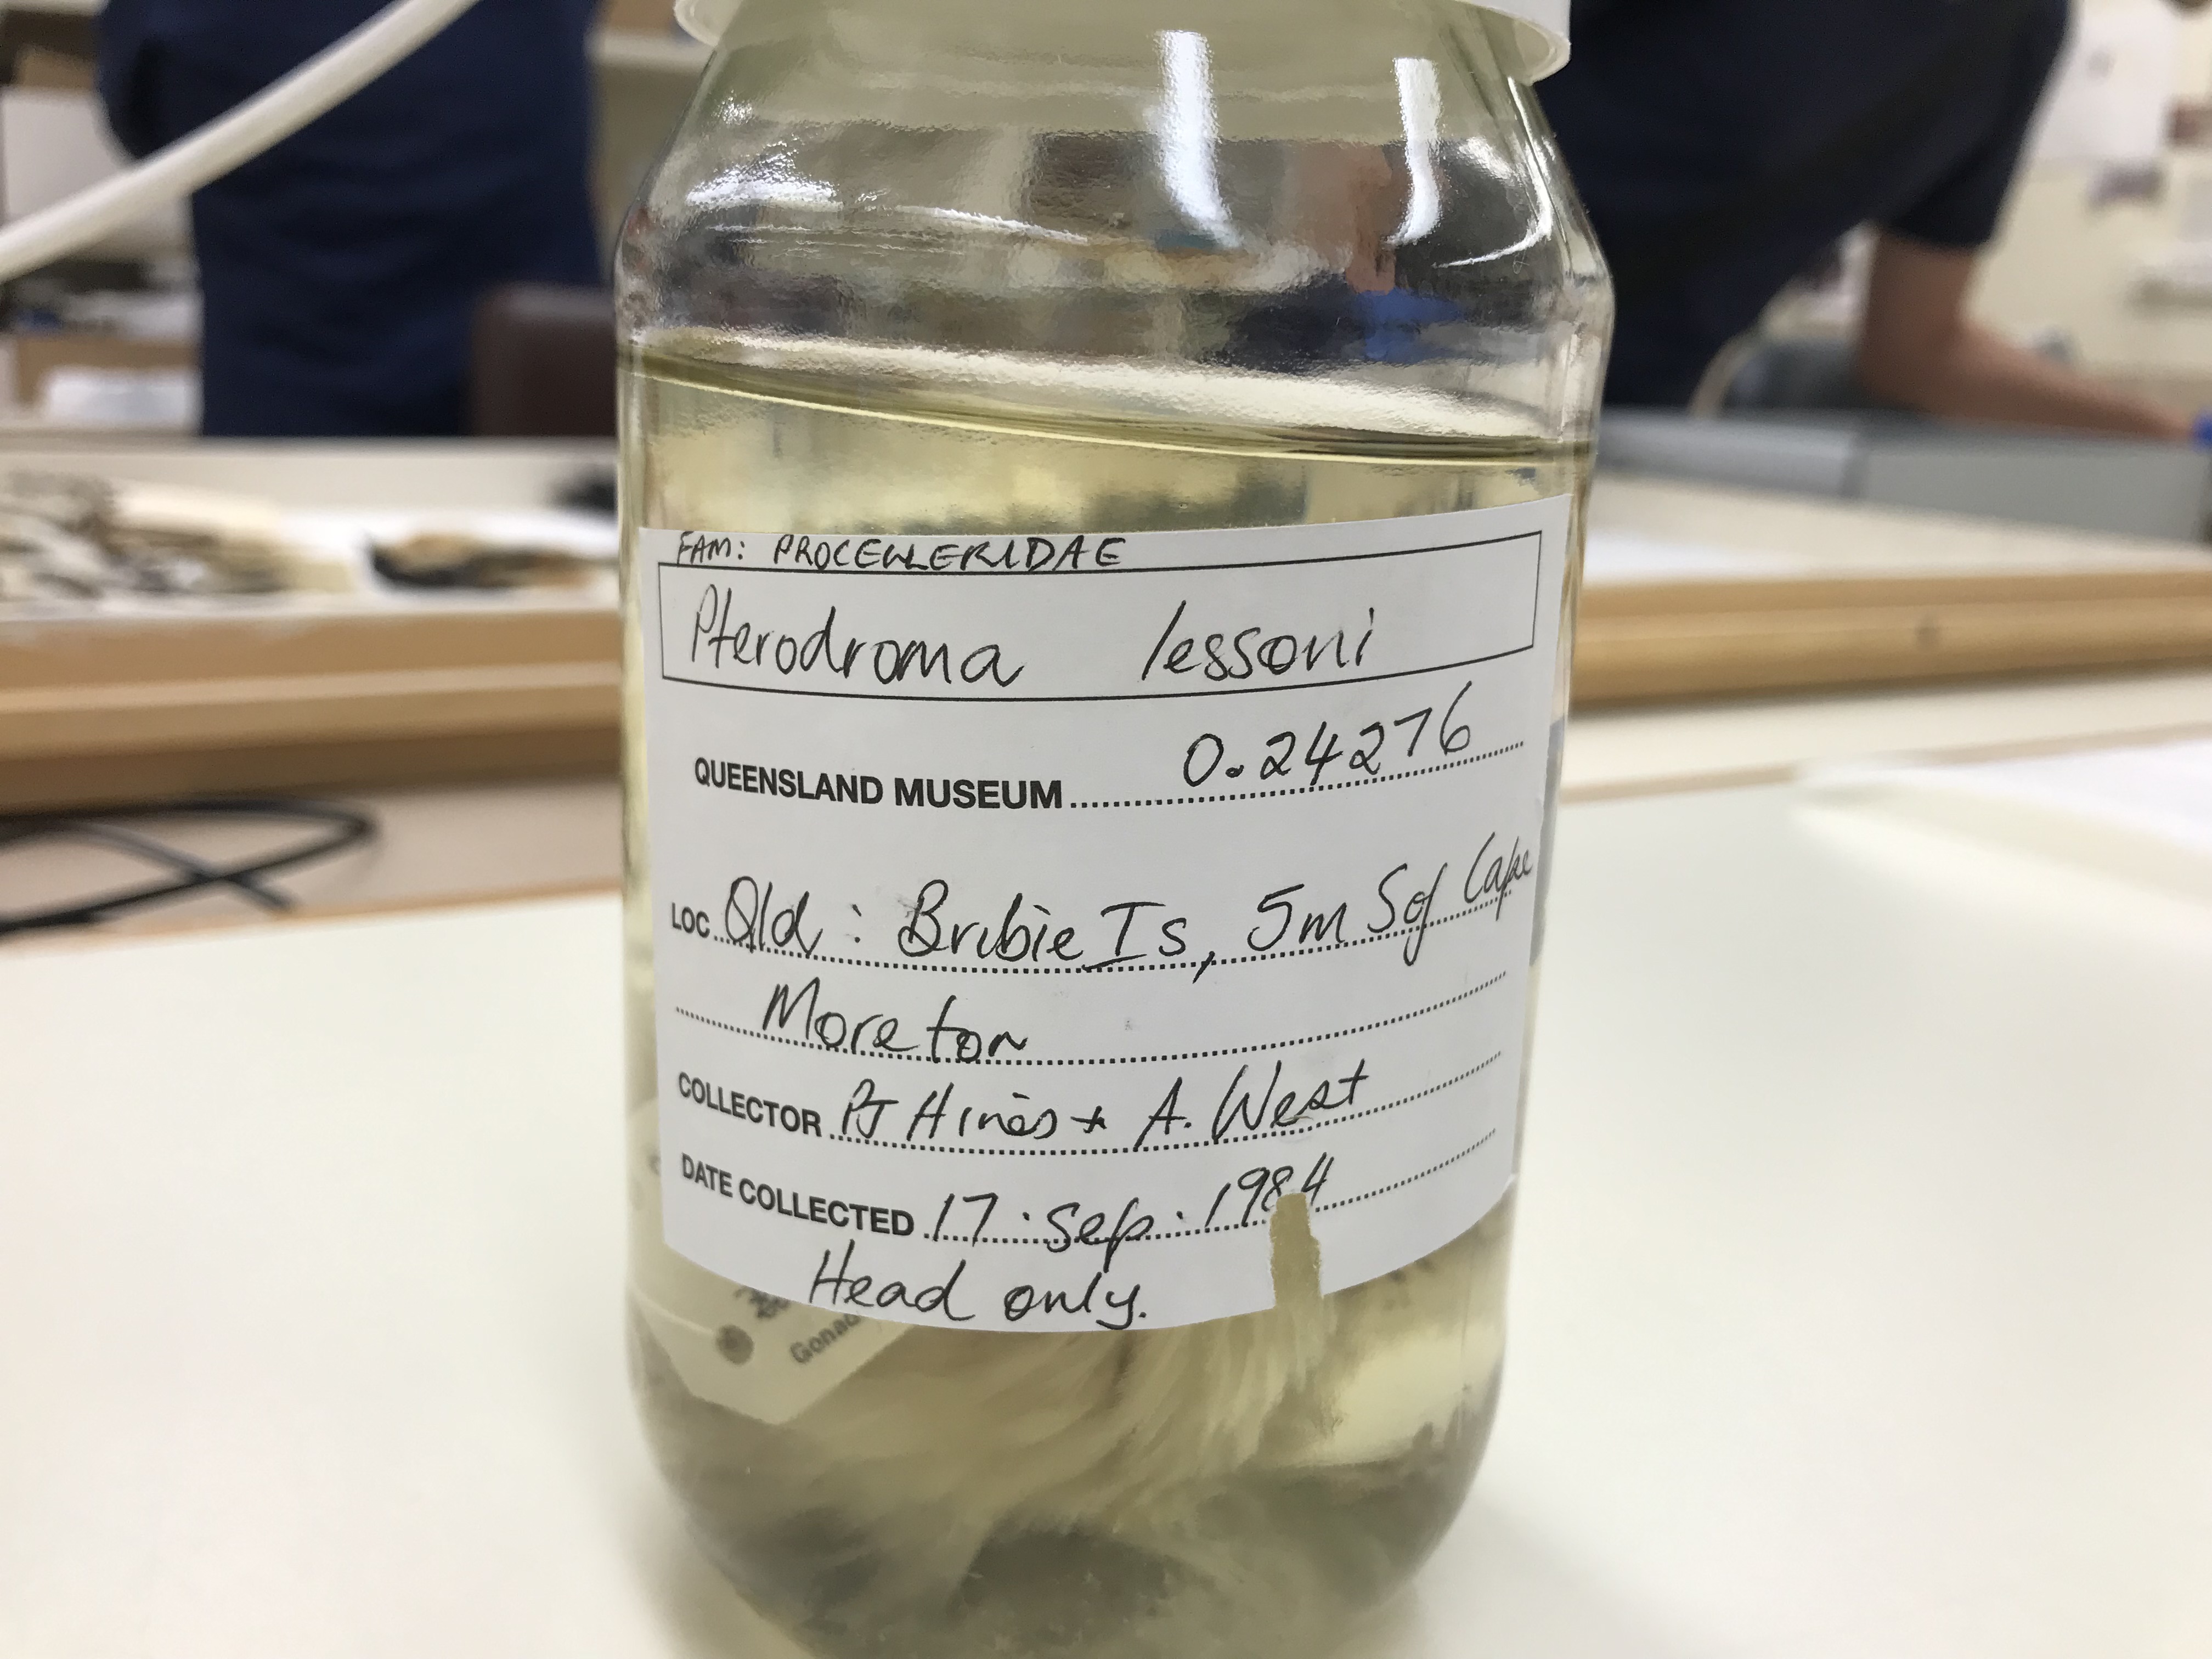 FAM: PROCELLERIDAE
Pterodroma lessoni
QUEENSLAND MUSEUM 0.24276
LOC Qld: Bribie Is, 5m S of Cape
Moreton
COLLECTOR PJ Hines + A. West
DATE COLLECTED 17.Sep.1984
Head only.